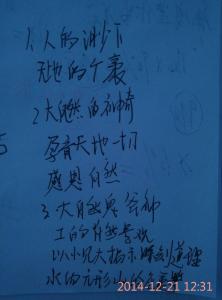 1、人的渺小
天地的广袤
2、大自然的神奇
孕育天地一切
感恩自然
3、大自然鬼斧神
工的自然景观
以小见大揭示深刻道理
水的无形山的
2014-12-21 12:31